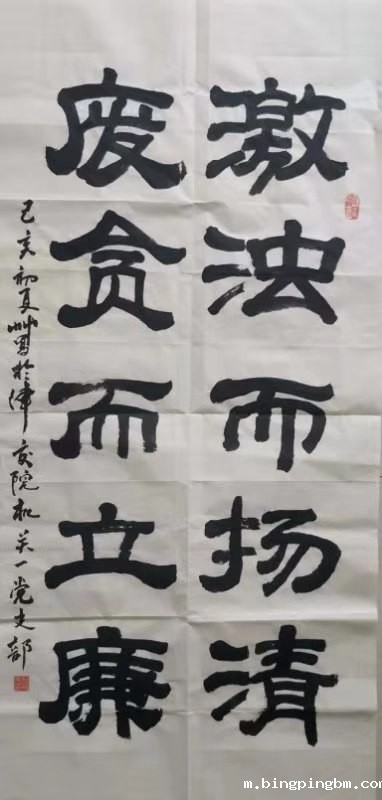 激浊而扬清
废贪而立廉
己亥初夏书於津交院机关一党支部
m.bingpingbm.com